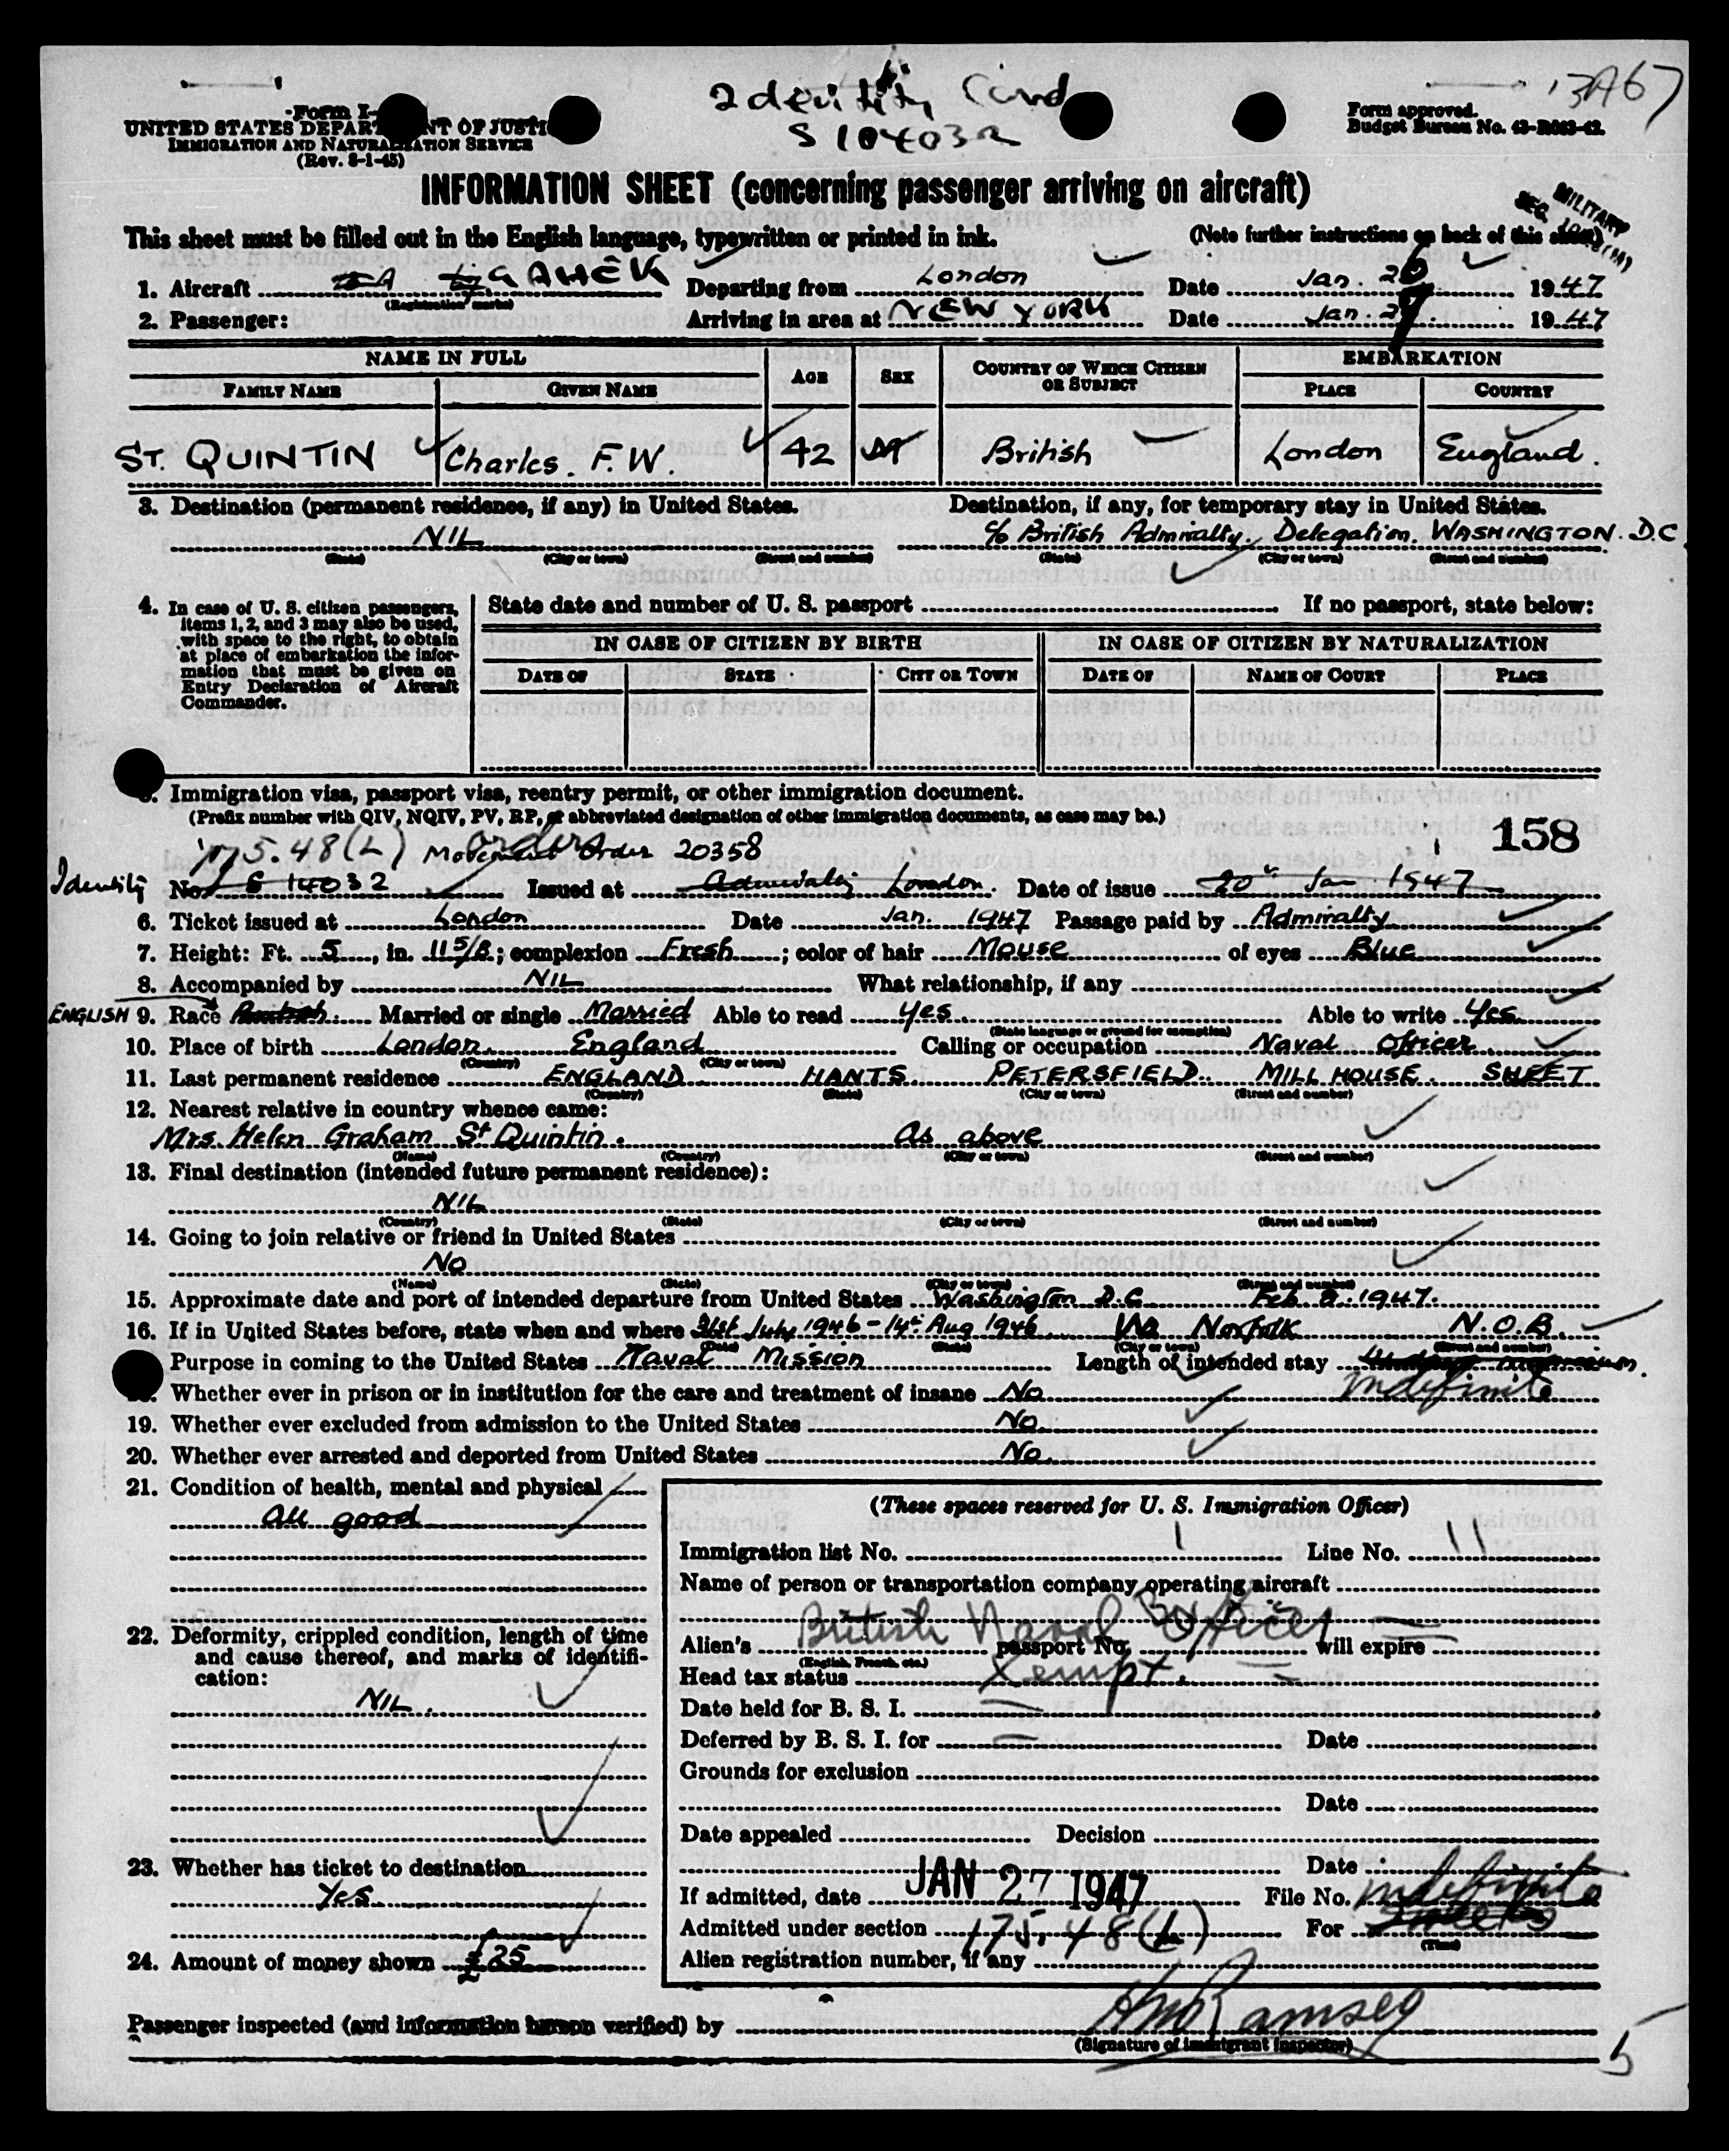 Identity Card
S 104032
Form I-
UNITED STATES DEPARTMENT OF JUSTICE
IMMIGRATION AND NATURALIZATION SERVICE
(Rev. 8-1-45)
Form approved.
Budget Bureau No. 43-R083-42.
INFORMATION SHEET (concerning passenger arriving on aircraft)
MILITARY
This sheet must be filled out in the English language, typewritten or printed in ink. (Note further instructions on back of this sheet)
1. Aircraft G AHEK (Registration marks) Departing from London Date Jan. 26 1947
2. Passenger: Arriving in area at NEW YORK Date Jan. 27. 1947
NAME IN FULL AGE SEX COUNTRY OF WHICH CITIZEN OR SUBJECT EMBARKATION
FAMILY NAME GIVEN NAME PLACE COUNTRY
ST. QUINTIN Charles. F. W. 42 M British London England.
3. Destination (permanent residence, if any) in United States. Destination, if any, for temporary stay in United States.
NIL c/o British Admiralty. Delegation. WASHINGTON. D.C
(State) (City or town) (Street and number) (State) (City or town) (Street and number)
4. In case of U. S. citizen passengers, items 1, 2, and 3 may also be used, with space to the right, to obtain at place of embarkation the information that must be given on Entry Declaration of Aircraft Commander.
State date and number of U. S. passport If no passport, state below:
IN CASE OF CITIZEN BY BIRTH IN CASE OF CITIZEN BY NATURALIZATION
DATE OF STATE CITY OR TOWN DATE OF NAME OF COURT PLACE
5. Immigration visa, passport visa, reentry permit, or other immigration document.
(Prefix number with QIV, NQIV, PV, RP, or abbreviated designation of other immigration documents, as case may be.)
158
175.48(L) Movement Order 20358
Identity No. S 14032 Issued at Admiralty London. Date of issue 20th Jan 1947
6. Ticket issued at London Date Jan. 1947 Passage paid by Admiralty
7. Height: Ft. 5, in. 11 5/8; complexion Fresh; color of hair Mouse of eyes Blue
8. Accompanied by NIL What relationship, if any
ENGLISH 9. Race Married or single Married Able to read Yes. Able to write Yes
(State language or ground for exemption)
10. Place of birth London. England Calling or occupation Naval Officer
(Country) (City or town)
11. Last permanent residence ENGLAND HANTS PETERSFIELD. MILL HOUSE. SHEET
(Country) (State) (City or town) (Street and number)
12. Nearest relative in country whence came:
Mrs. Helen Graham St Quintin. As above
(Name) (Country) (City or town) (Street and number)
13. Final destination (intended future permanent residence):
NIL
(Country) (State) (City or town) (Street and number)
14. Going to join relative or friend in United States
No
(Name) (State) (City or town) (Street and number)
15. Approximate date and port of intended departure from United States Washington D.C. Feb 1947.
16. If in United States before, state when and where 31st July 1946 - 14th Aug 1946 Va Norfolk N.O.B.
(Date) (State) (City or town) (Street and number)
Purpose in coming to the United States Naval Mission Length of intended stay
indefinite
Whether ever in prison or in institution for the care and treatment of insane No
19. Whether ever excluded from admission to the United States No.
20. Whether ever arrested and deported from United States No.
21. Condition of health, mental and physical
All good
22. Deformity, crippled condition, length of time and cause thereof, and marks of identification:
NIL.
23. Whether has ticket to destination
Yes
24. Amount of money shown £25
(These spaces reserved for U. S. Immigration Officer)
Immigration list No. 1 Line No. 11
Name of person or transportation company operating aircraft
British Naval Officer
Alien's passport No. will expire
(English, French, etc.)
Head tax status Exempt.
Date held for B. S. I.
Deferred by B. S. I. for Date
Grounds for exclusion
Date
Date appealed Decision
Date
If admitted, date JAN 27 1947 File No. indefinite
Admitted under section 175.48(L) For
(Time)
Alien registration number, if any
Passenger inspected (and information hereon verified) by Ramsey
(Signature of immigrant inspector)
5